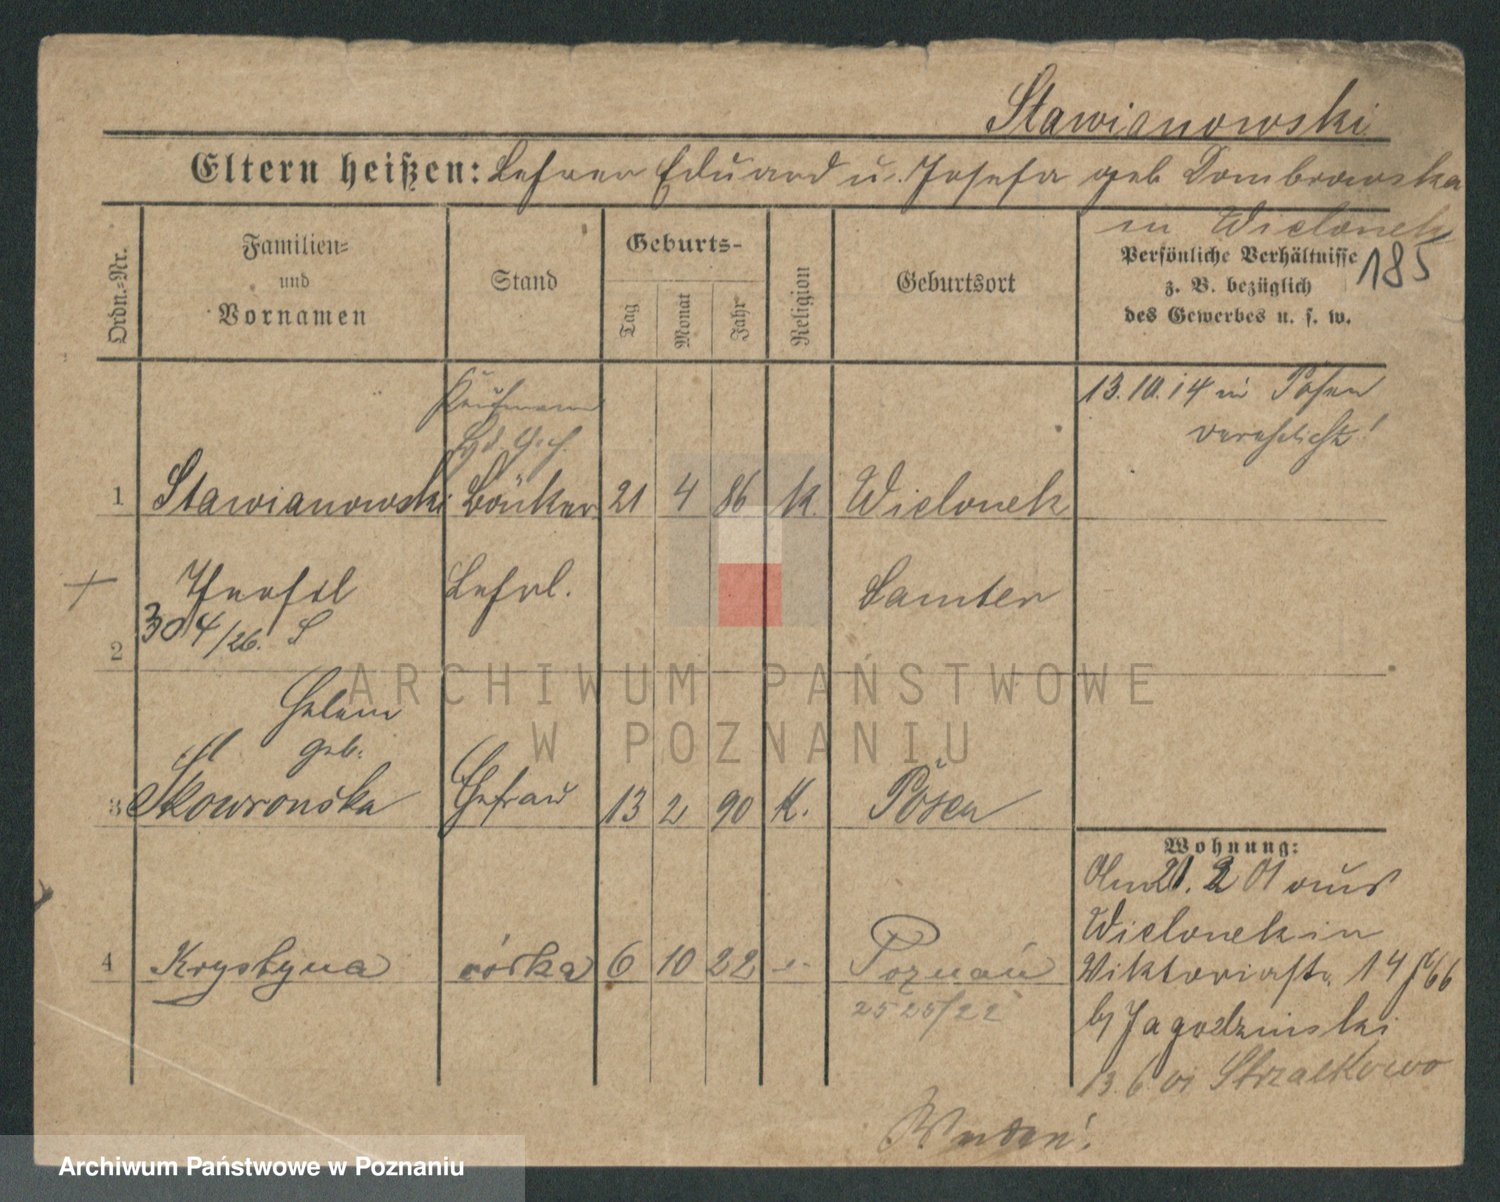 Stawianowski
Eltern heißen: Lehrer Eduard u. Josefa geb Dombrowska
in Wielonek
185
Ordn.-Nr.
Familien-
und
Vornamen
Stand
Geburts-
Tag
Monat
Jahr
Religion
Geburtsort
Persönliche Verhältnisse
z. B. bezüglich
des Gewerbes u. s. w.
Kaufmann
13.10.14 in Posen
verehelicht!
1 Stawianowski 21 4 86 k. Wielonek
Teofil Lehrl. Samter
304/26. S
2
Helene
geb.
3 Skowrońska Ehefrau 13 2 90 K. Posen
Wohnung:
Am 21. 2 01 aus
Wielonek in
Viktoriastr. 14
4 Krystyna córka 6 10 22 Poznań
2525/22
by Jagodzinski
13.6.01 Strzalkowo
ARCHIWUM PAŃSTWOWE
W POZNANIU
Archiwum Państwowe w Poznaniu